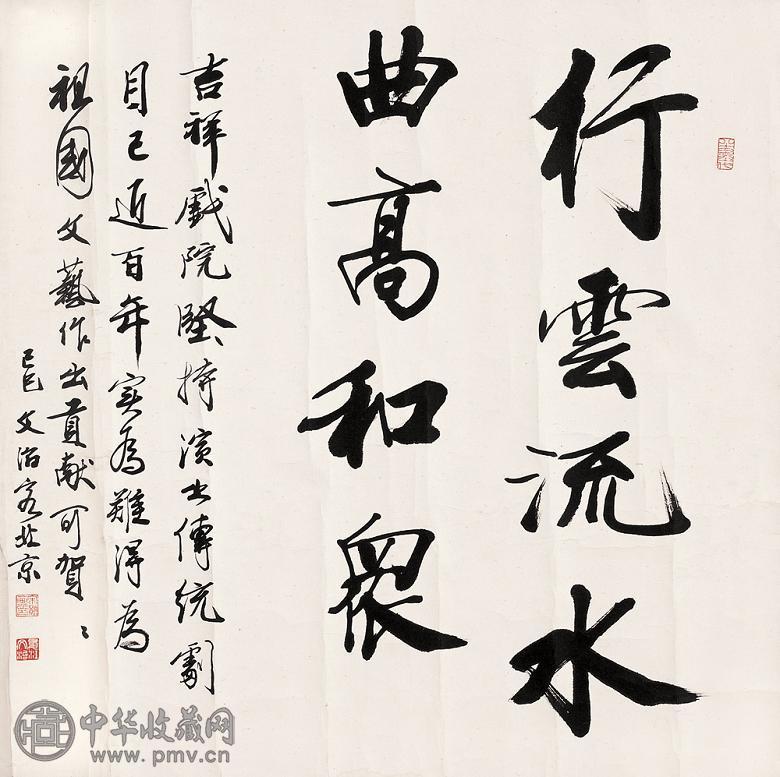 行雲流水
曲高和眾
吉祥戲院堅持演出傳統劇
目已近百年实为難得為
祖國文藝作出貢献可賀〻
己巳文治客北京
中华收藏网
www.pmv.cn